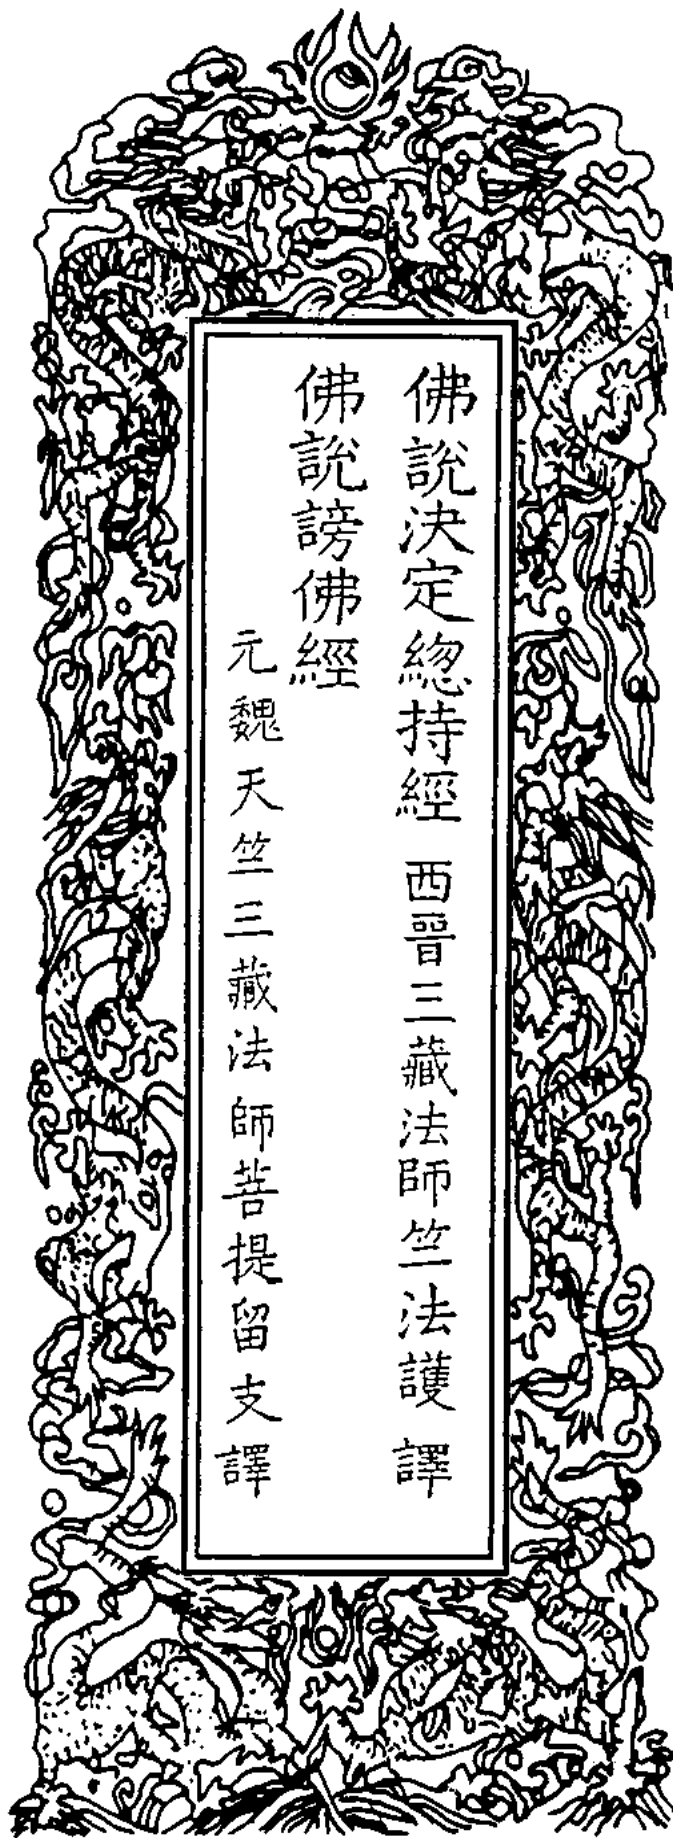 佛說決定緫持經 西晉三藏法師竺法護 譯
佛說謗佛經
元魏天竺三藏法師菩提留支譯